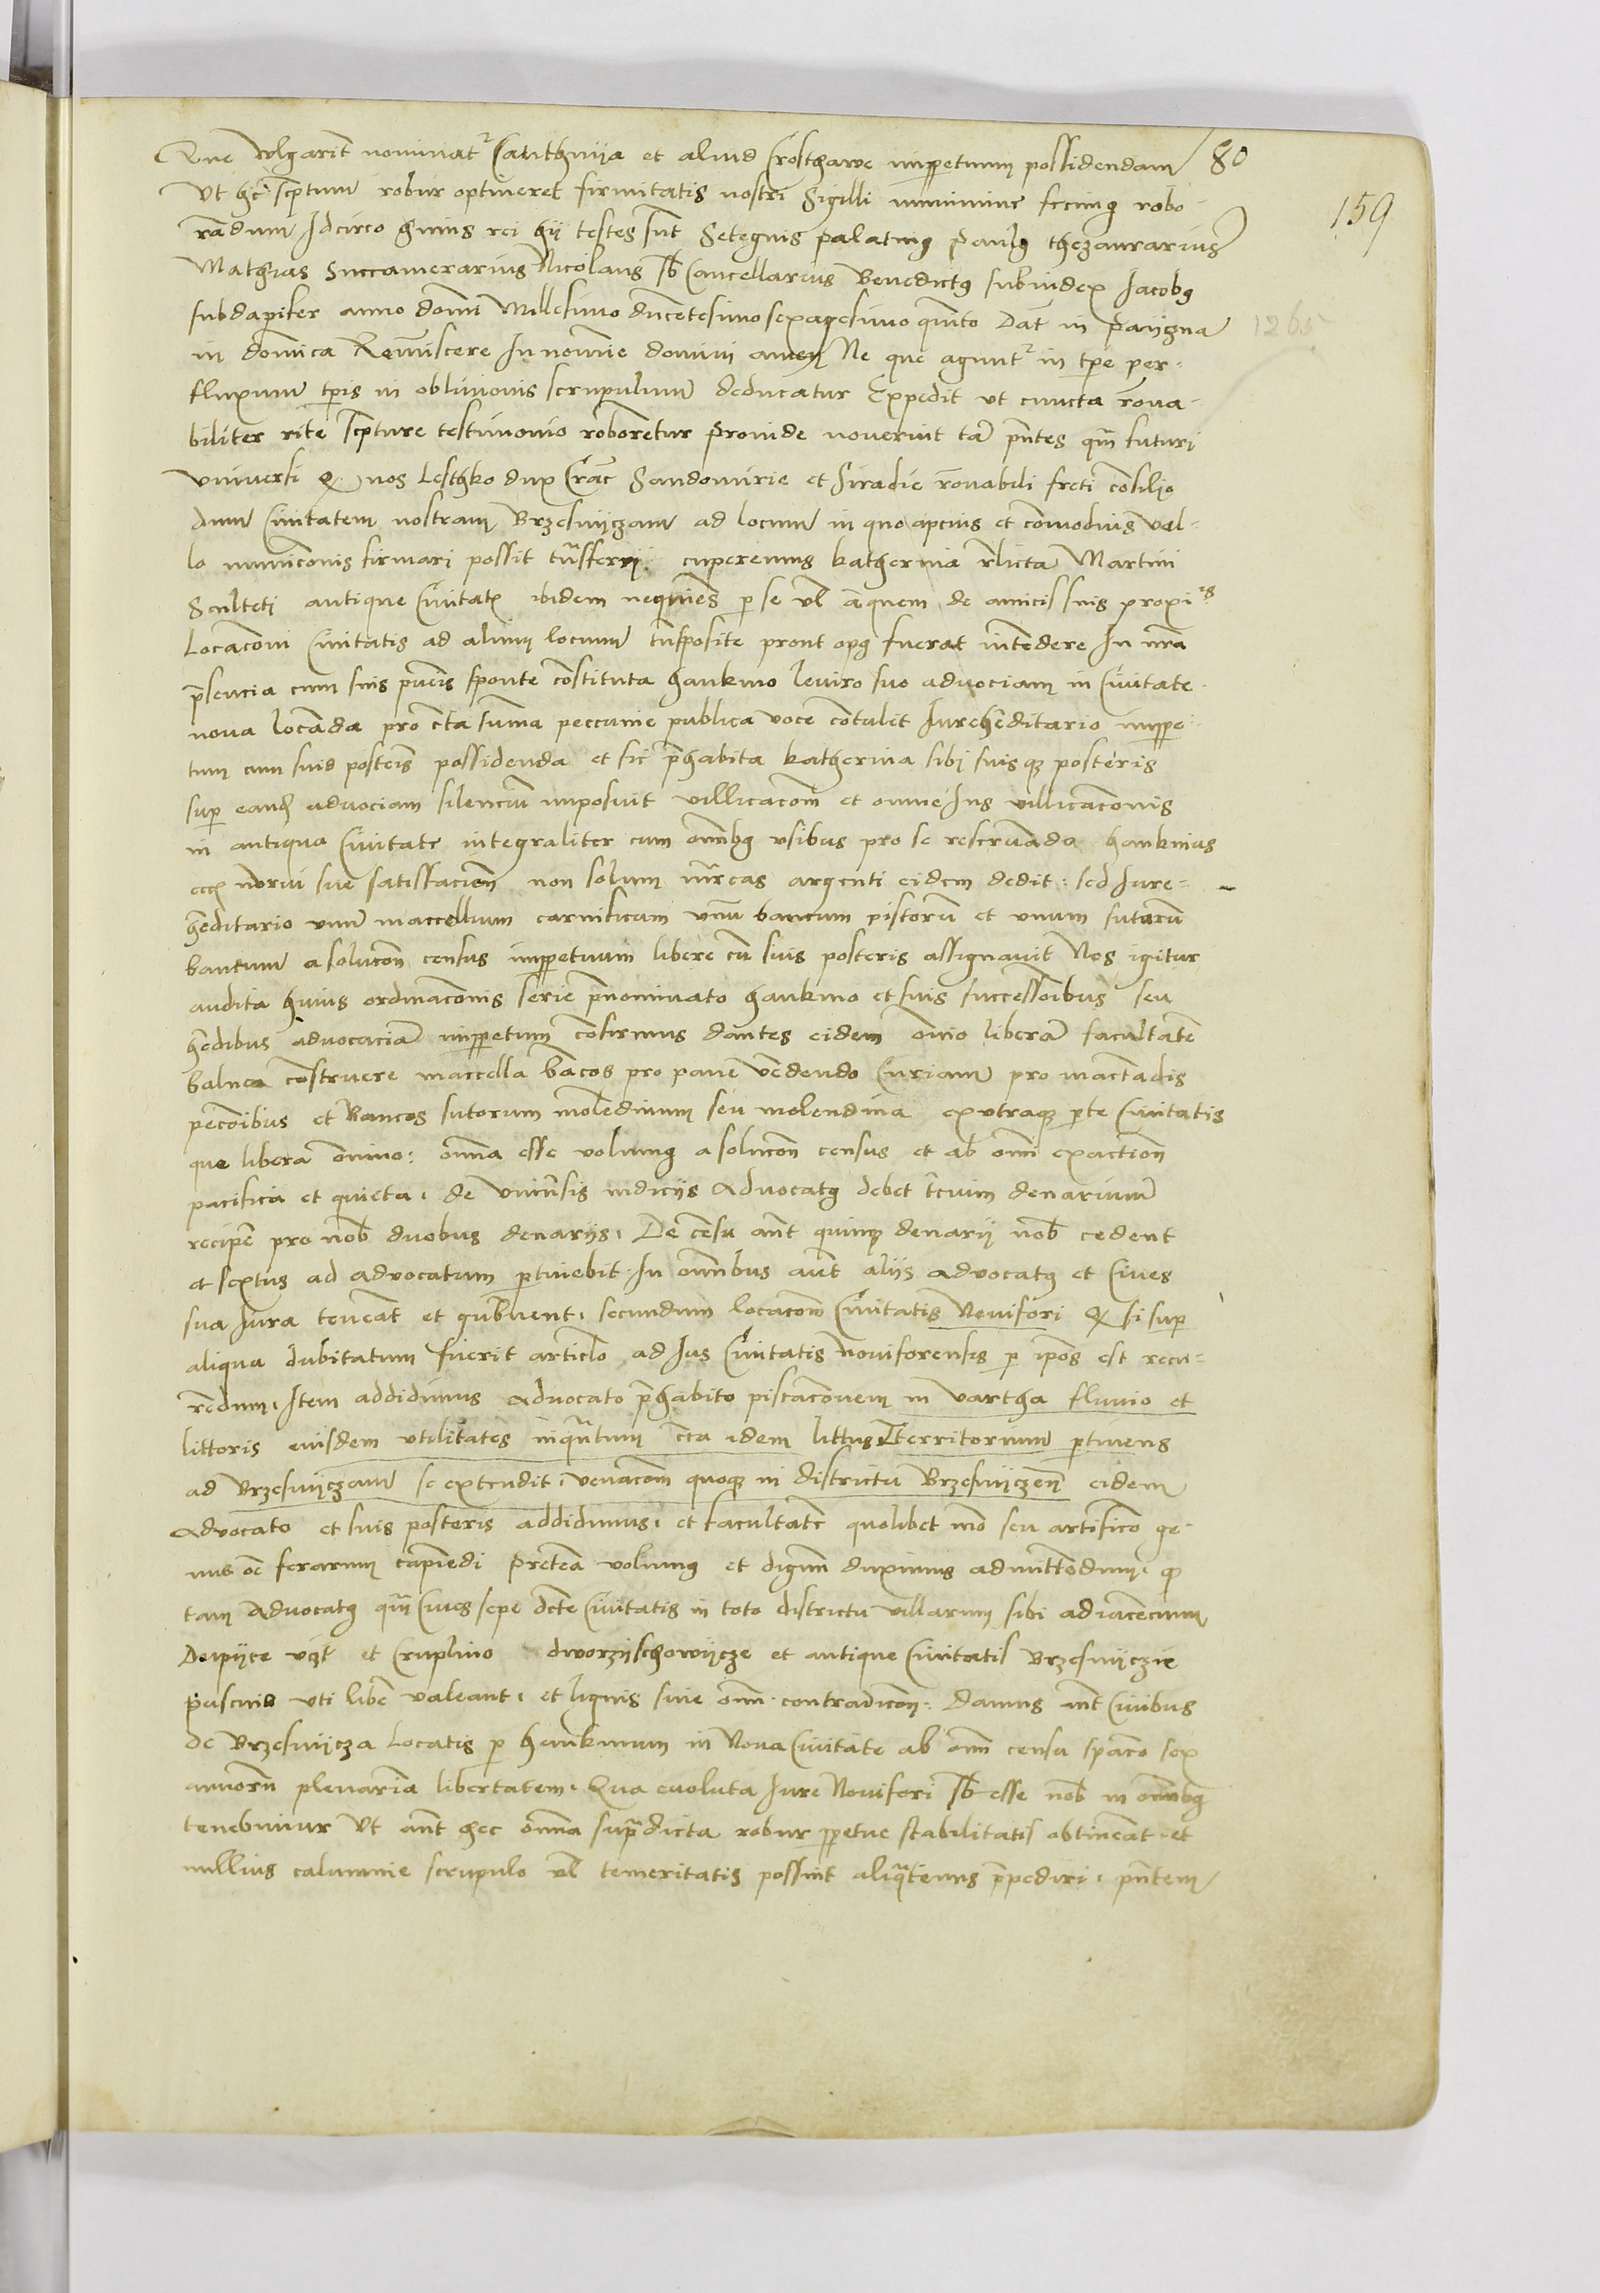 Que wlgarit nominat Canthnija et aliud Crosthawe imppetuum possidendam 80
Ut hic scptum robur optineret firmitatis nostri Sigilli munimine fecimus robo
159
randum Idcirco huius rei hij testes sunt Setegnis palatinus Paulus thezaurarius
Mathias Succamerarius Nicolaus sb Cancellarius Benedictus subiudex Iacobus
subdapifer anno domi Millesimo ducentesimo sexagesimo quinto Dat in Paijzna 1265
in domica Reminiscere In nomie domini amen Ne que agunt in tpe per
fluxum tpis in oblivionis scrupulum deducatur Expedit ut cuncta rona
biliter rite scpture testimonio roborentur Proinde noverint tam pntes qm futuri
universi q nos Lesthko dux Crac Sandomirie et Siradie ronabili freti consilio
dum Civitatem nostram Brzesnijczam ad locum in quo apcius et comodius val
lo municonis firmari possit transferri cuperemus katherina relicta Martini
Sculteti antique Civitatis ibidem nequiens p se vl aliquem de amicis suis proximis
Locaconi Civitatis ad alium locum transposite prout opus fuerat intendere In nra
presencia cum suis pueris sponte constituta hankmo leviro suo advociam in Civitate
nova locanda pro certa summa peccunie publica voce contulit Iure hereditario imppe
tuum cum suis posteris possidenda et sic prehabita katherina sibi suisque posteris
sup eandem advociam silencium imposuit villicacom et omne Ius villicaconis
in antiqua Civitate integraliter cum omnibus usibus pro se reservanda hanknius
norui sue satisfaciens non solum marcas argenti eidem dedit sed Iure
hereditario unum maccellum carnificum unum bancum pistorum et unum sutorum
bancum a solucone census imppetuum libere cum suis posteris assignavit Nos igitur
audita huius ordinaconis serie prenominato hankmo et suis successoribus seu
heredibus advocaciam imppetuum confirmamus dantes eidem omnio liberam facultatem
balnea construere maccella bancos pro pane vendendo Curiam pro mactandis
pecoribus et Bancos sutorum molendinum seu molendina ex utraque parte Civitatis
que libera omnino omnia esse volumus a solucone census et ab omni exactione
pacifica et quieta de universis iudiciis Advocatus debet tercium denarium
recipere pro nobis duobus denariis De censu aut quinque denarij nobis cedent
et sextus ad Advocatum ptinebit In omnibus aut aliis Advocatus et Cives
sua Iura teneant et gubernent secundum locacom Civitatis Novifori q si sup
aliqua dubitatum fuerit articulo ad Ius Civitatis noviforensis p ipos est recu
rendum Item addidimus Advocato prehabito piscaconem in Vartha fluvio et
littoris eiusdem utilitates inquantum circa idem littus territorium ptinens
ad Brzesnijczam se extendit venacom quoque in districtu Brzesnijczen eidem
Advocato et suis posteris addidimus et facultatem quolibet mo seu artificio ge
nus oe ferarum capiendi Preterea volumus et dignum duximus admittendum quod
tam Advocatus qm Cives sepe dicte Civitatis in toto districtu villarum sibi adiacencium
Dupijce uczt et Cruplino dworzijschowijcze et antique Civitatis Brzesnijczie
pascuis uti libere valeant et lignis sine omni contradicone Damus aut Civibus
de Brzesnijcza Locatis p hankmum in Nova Civitate ab omni censu spacio sex
annorum plenariam libertatem Qua evoluta Iure Novifori sb esse nobis in omnibus
tenebuntur Ut aut hec omnia supradicta robur ppetue stabilitatis obtineant et
nullius calumnie scrupulo vl temeritatis possint aliquatenus prepediri pntem